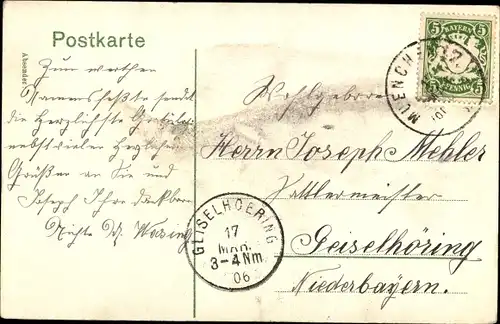 Postkarte
Absender
Zum werthen
Namensfeste sendet
die herzlichste Gratula-
nebst vielen herzlichen
Grüßen an Sie und
Joseph Ihre dankbare
Nichte
BAYERN
5 5
PFENNIG
MUENCH
Wohlgeboren
Herrn Joseph Mehler
Sattlermeister
Geiselhöring
Niederbayern.
GEISELHOERING
17
MAR.
3-4 Nm.
06